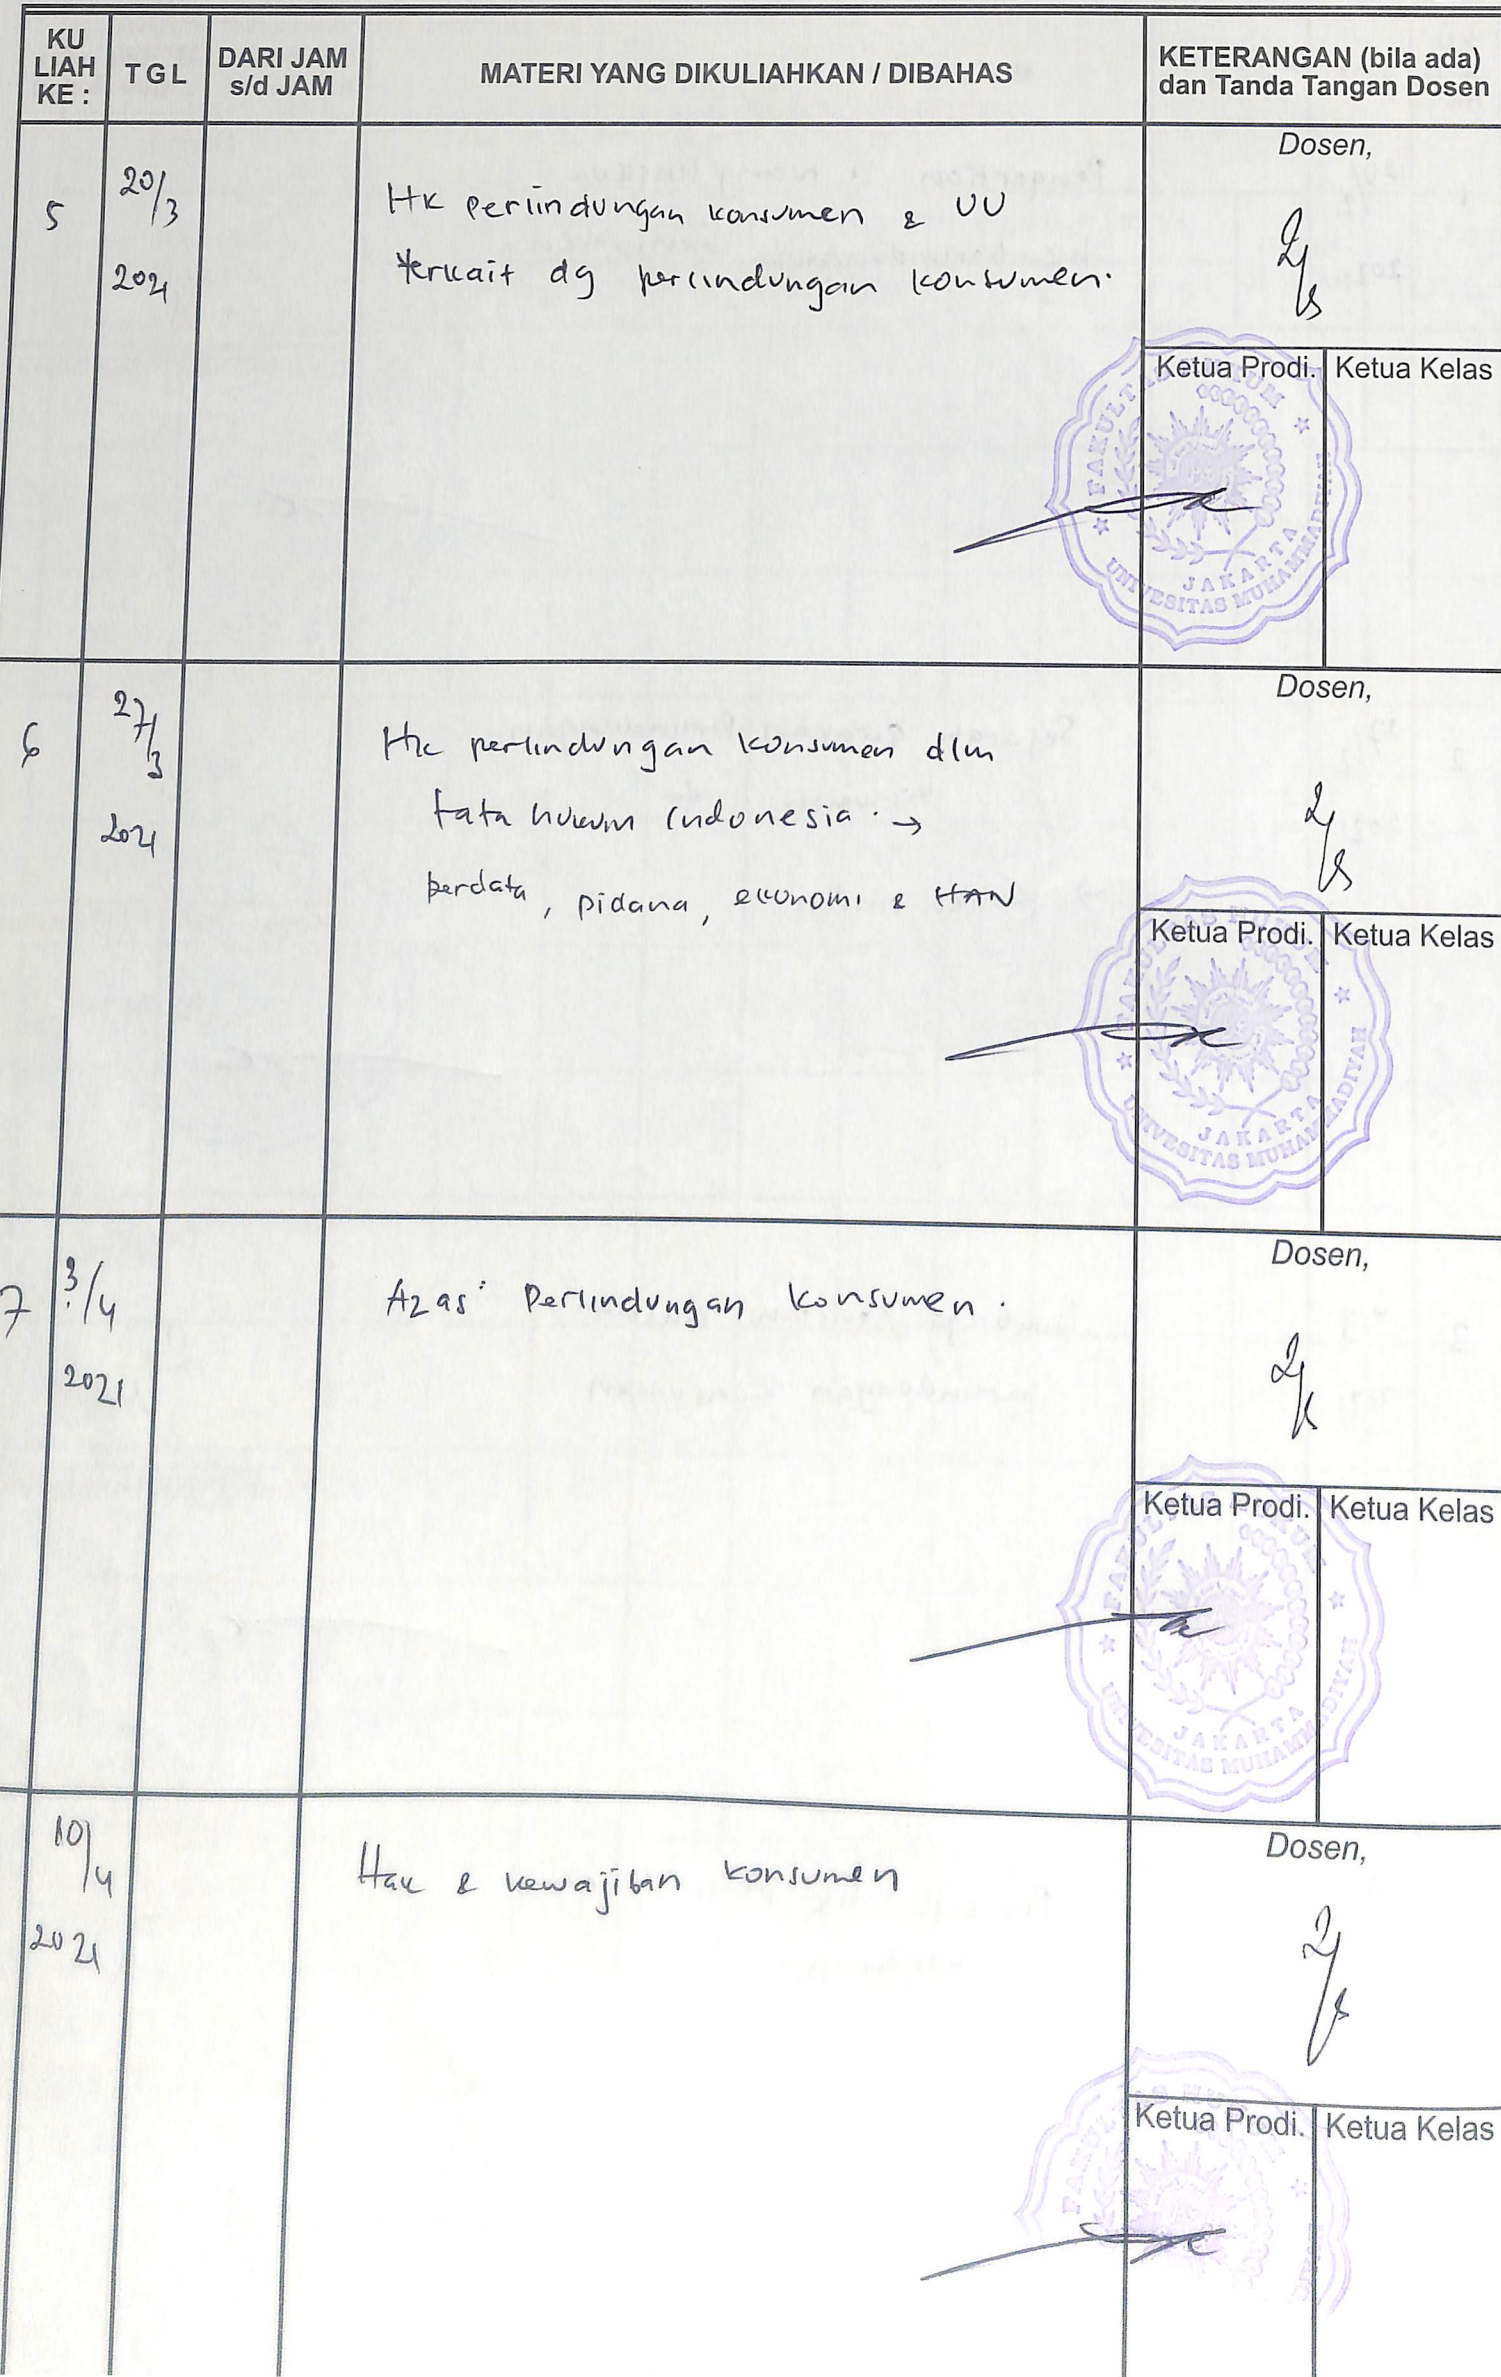 KU
LIAH
KE :
TGL
DARI JAM
s/d JAM
MATERI YANG DIKULIAHKAN / DIBAHAS
KETERANGAN (bila ada)
dan Tanda Tangan Dosen
5
20/3
2021
Hk perlindungan konsumen & UU
terkait dg perlindungan konsumen.
Dosen,
Ketua Prodi. Ketua Kelas
FAKULTAS HUKUM
JAKARTA
UNIVESITAS MUHAMMADIYAH
6
27/3
2021
Hk perlindungan konsumen dlm
tata hukum Indonesia. →
perdata, pidana, ekonomi & HAN
Dosen,
Ketua Prodi. Ketua Kelas
FAKULTAS HUKUM
JAKARTA
UNIVESITAS MUHAMMADIYAH
7
3/4
2021
Azas² Perlindungan konsumen.
Dosen,
Ketua Prodi. Ketua Kelas
FAKULTAS HUKUM
JAKARTA
UNIVESITAS MUHAMMADIYAH
10/4
2021
Hak & kewajiban konsumen
Dosen,
Ketua Prodi. Ketua Kelas
FAKULTAS HUKUM